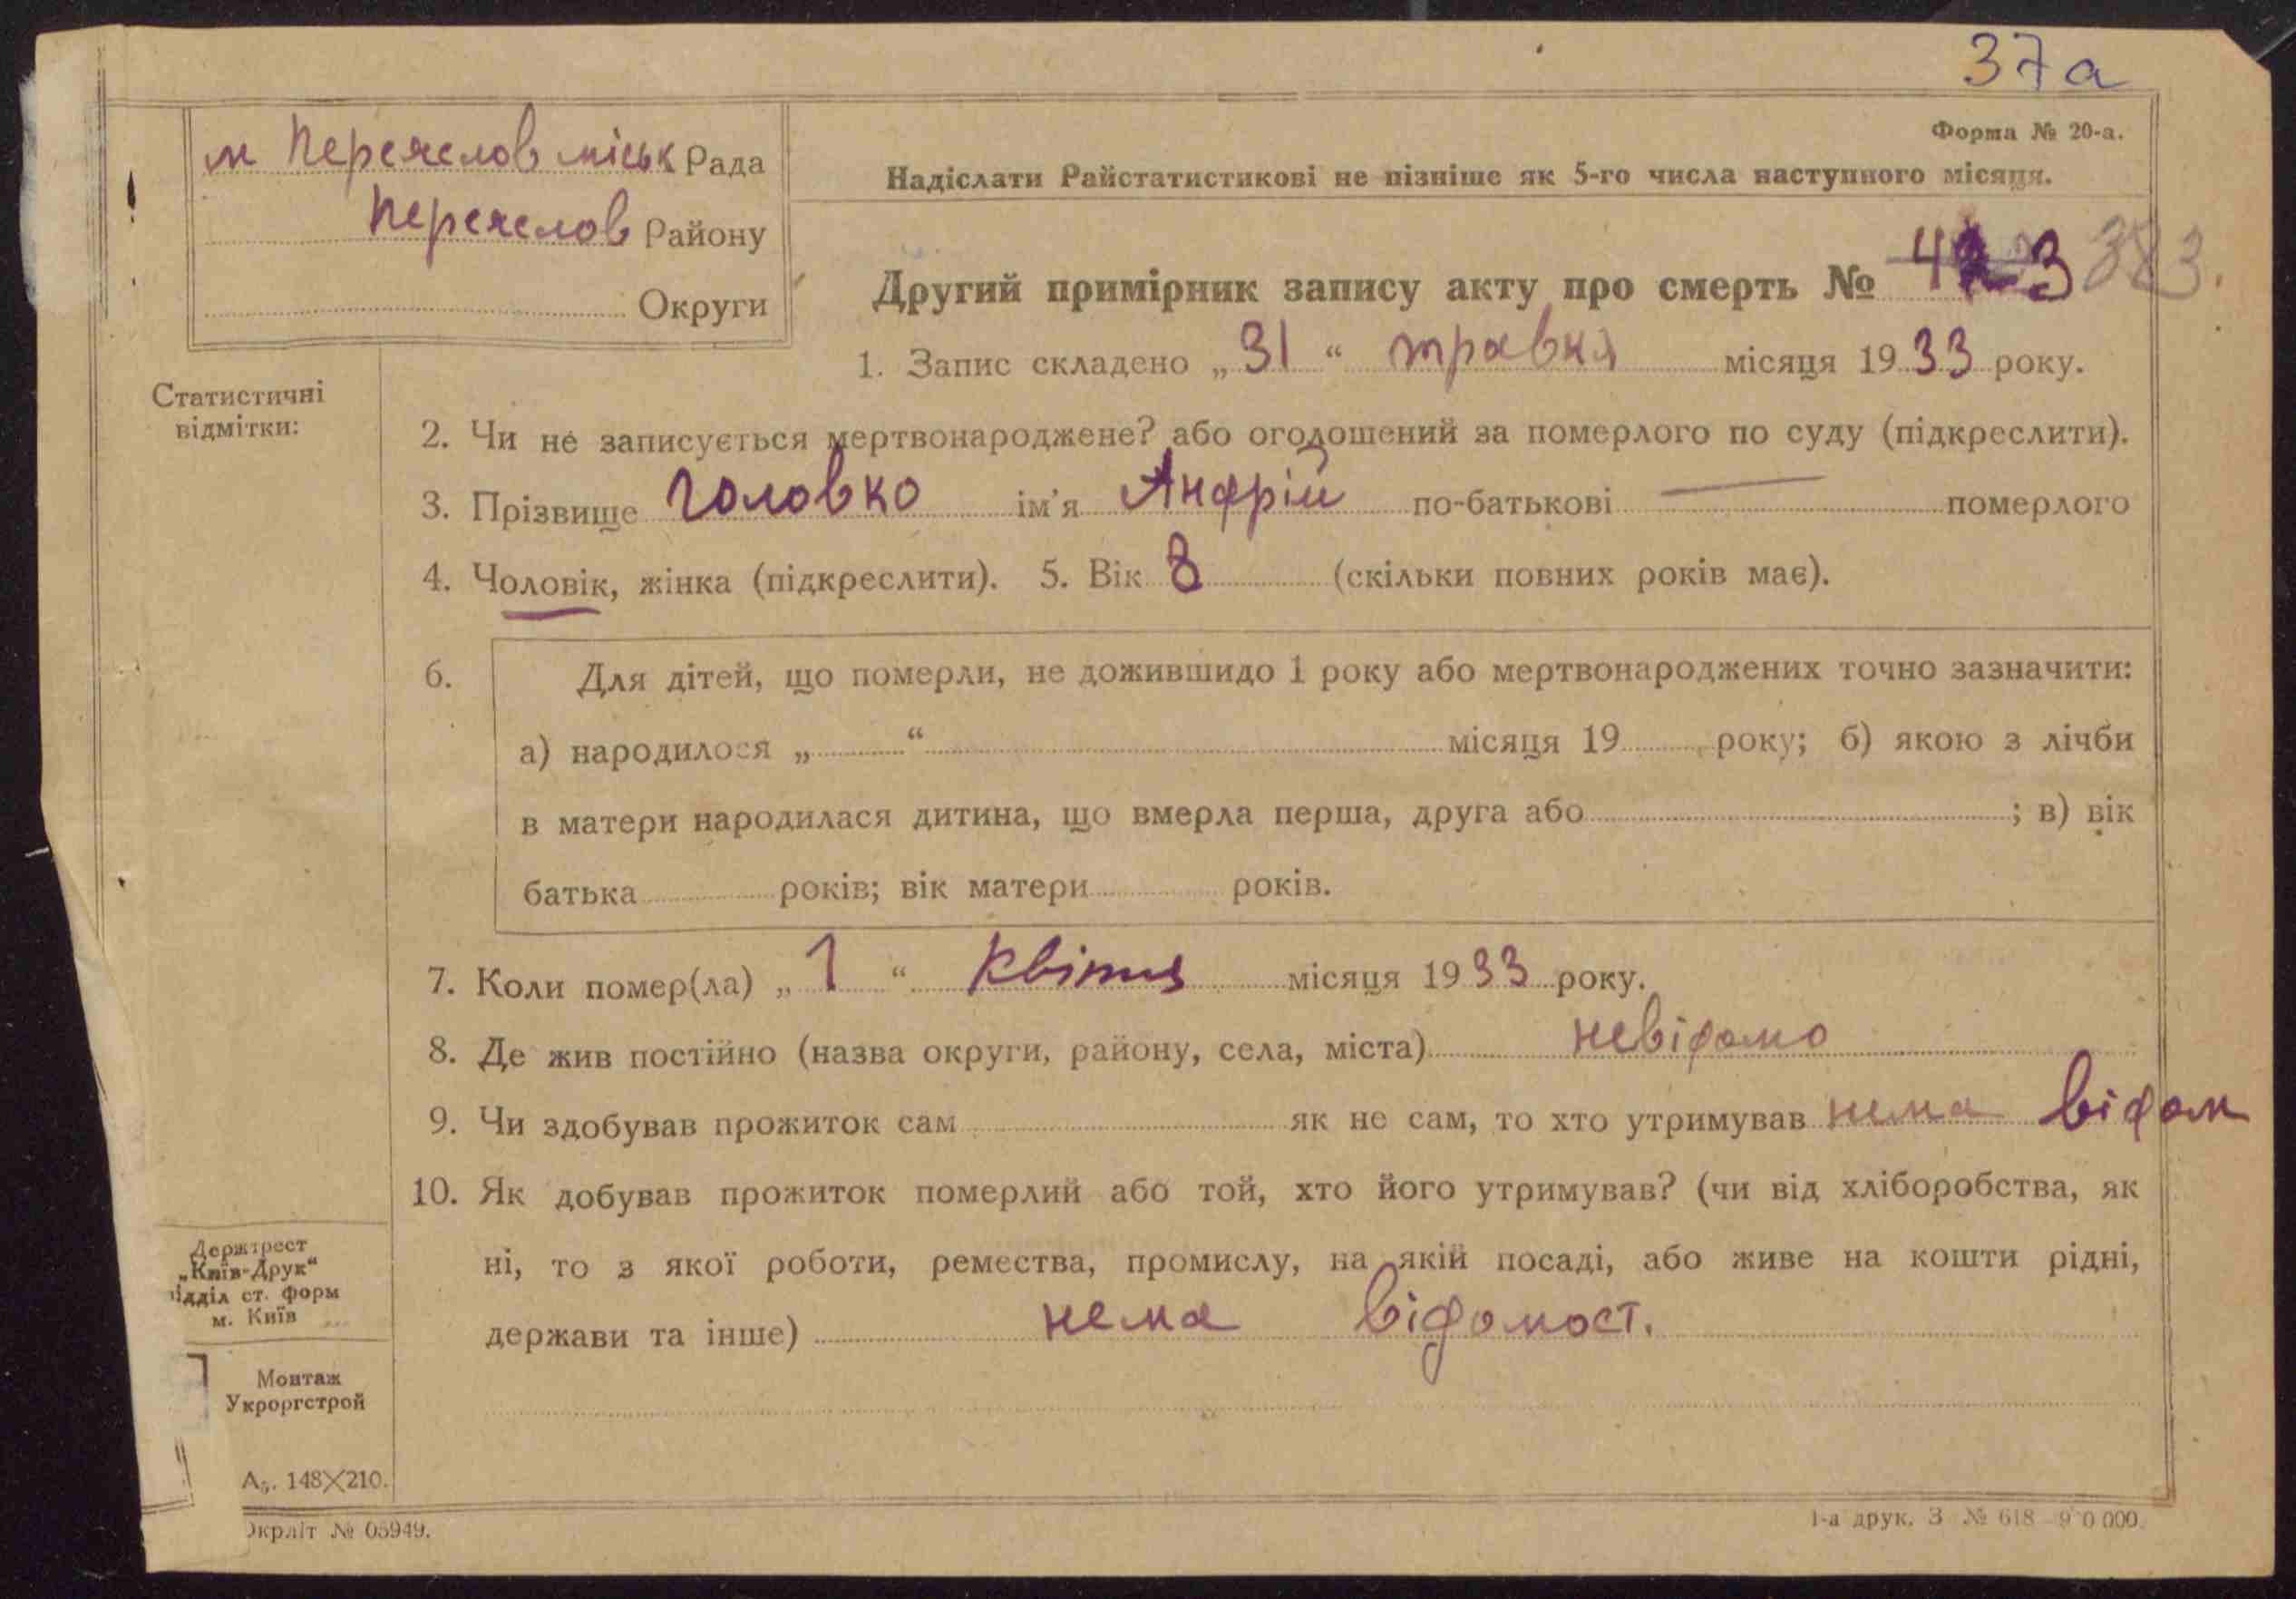 37а
Форма № 20-а.
м Переяслов міськ Рада
Переяслов Району
Округи
Надіслати Райстатистикові не пізніше як 5-го числа наступного місяця.
Другий примірник запису акту про смерть № 3 383.
1. Запис складено „31“ травня місяця 1933 року.
Статистичні
відмітки:
2. Чи не записується мертвонароджене? або оголошений за померлого по суду (підкреслити).
3. Прізвище Головко ім'я Андрій по-батькові — померлого
4. Чоловік, жінка (підкреслити). 5. Вік 8 (скільки повних років має).
6. Для дітей, що померли, не дожившидо 1 року або мертвонароджених точно зазначити:
а) народилося „ “ місяця 19 року; б) якою з лічби
в матери народилася дитина, що вмерла перша, друга або ; в) вік
батька років; вік матери років.
7. Коли помер(ла) „1“ квітня місяця 1933 року.
8. Де жив постійно (назва округи, району, села, міста) невідомо
9. Чи здобував прожиток сам як не сам, то хто утримував нема відом
10. Як добував прожиток померлий або той, хто його утримував? (чи від хліборобства, як
ні, то з якої роботи, ремества, промислу, на якій посаді, або живе на кошти рідні,
держави та інше) нема відомост.
Держтрест
„Київ-Друк“
ідділ ст. форм
м. Київ
Монтаж
Укроргстрой
А₅. 148×210.
Окрліт № 05949.
1-а друк. З № 618